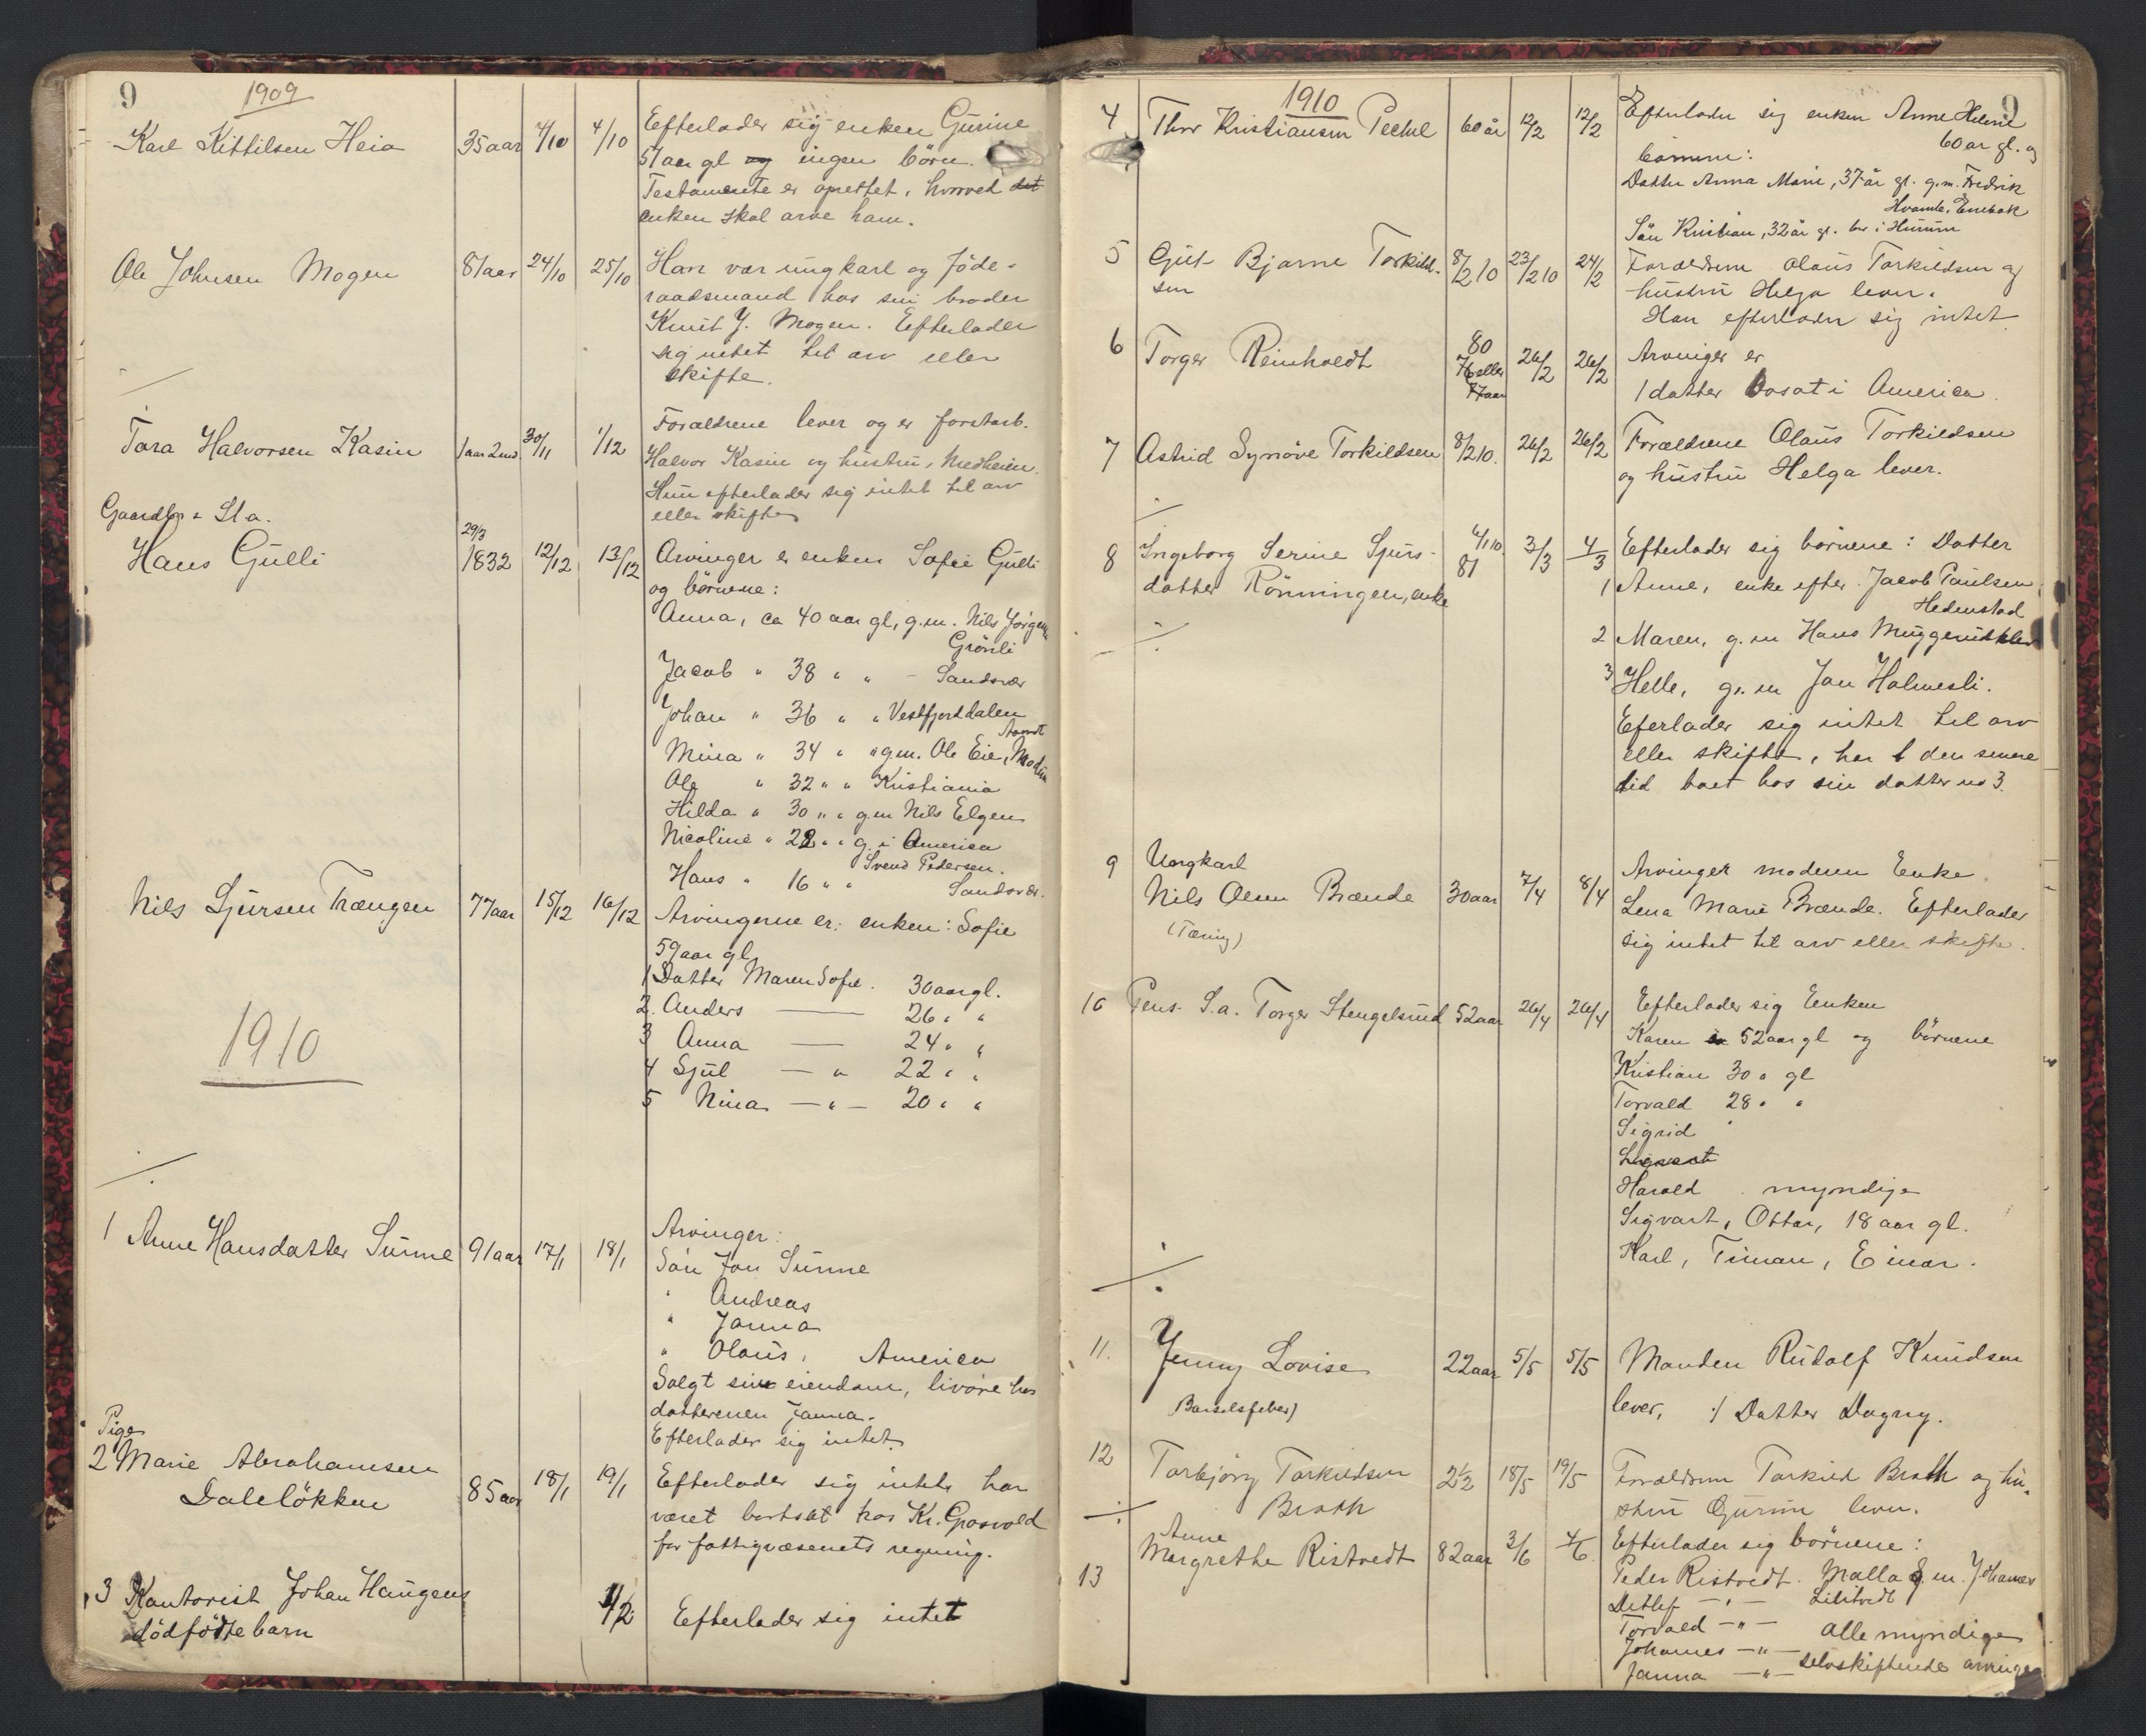 9
1909
Karl Kittilsen Heia 35aar 4/10 4/10 Efterlader sig enken Gurine
57aar gl og ingen börn.
Testamente er oprettet, hvorved det
enken skal arve ham.
Ole Johnsen Mogen 81aar 24/10 25/10 Han var ungkarl og föde-
raadsmand hos sin broder
Knut J. Mogen. Efterlader
sig intet til arv eller
skifte.
Tora Halvorsen Kasin 1 aar 2 md. 30/11 1/12 Forældrene lever og er forstarb.
Halvor Kasin og hustru, Medheim.
Hun efterlader sig intet til arv
eller skifte
Gaardbr. & St a.
Hans Gulli 29/3 1832 12/12 13/12 Arvinger er enken Sofie Gulli
og börnene:
Anna, ca 40 aar gl, g.m. Nils Jörgen
Grönli
Jacob " 38 " " - Sandsvær
Johan " 36 " " Vestfjorddalen
Mina " 34 " " g.m. Ole Eie, Modum
Ole " 32 " " Kristiania
Hilda " 30 " " g m Nils Elgen
Nicoline " 22 " " g. i America
Svend Pedersen.
Hans " 16 " " Sandsvær.
Nils Sjursen Trængen 77aar 15/12 16/12 Arvingerne er: enken: Sofie
59aar gl
1 Datter Maren Sofie. 30aar gl.
2. Anders — 26 " "
3 Anna — 24 " "
4 Sjul — " 22 " "
5 Nina — " — 20 " "
1910
1 Anne Hansdatter Sunne 91aar 17/1 18/1 Arvinger:
Sön Jon Sunne
" Andreas
" Janna
" Olaus, America
Solgt sin eiendom, livöre hos
datterenen Janna.
Efterlader sig intet.
Pige
2 Marie Abrahamsen
Dalelökken 85aar 18/1 19/1 Efterlader sig intet, har
været bortsat hos Kr. Gosvold
for fattigvæsenets regning.
3 Kontorist Johan Haugens
dödfödte barn 1/2 Efterlader sig intet
9
1910
4 Thor Kristiansen Pechel 60 år 12/2 12/2 Efterlader sig enken Anne Helene
60 år gl. og
börnene:
Datter Anna Marie, 37 år gl. g.m. Fredrik
Hvamb, Enebak
Sön Kristian, 32 år gl. bor i Hurum
5 Gut Bjarne Torkild-
sen 8/2 10 23/2 10 24/2 Forældrene Olaus Torkildsen og
hustru Helga lever.
Han efterlader sig intet
6 Torger Reinholdt 80 76 eller 77 aar 26/2 26/2 Arvinger er
1 datter bosat i America.
7 Astrid Synöve Torkildsen 8/2 10. 26/2 26/2 Forældrene Olaus Torkildsen
og hustru Helga lever.
8 Ingeborg Serine Sjurs-
datter Rönningen, enke 81 3/3 4/3 Efterlader sig börnene: Datter
1 Anne, enke efter Jacob Paulsen
Hedenstad
2 Maren, g. m Hans Muggerudkleiv
3 Helle, g. m Jon Holmesli.
Eferlader sig intet til arv
eller skifte, har i den senere
tid boet hos sin datter no 3.
9 Ungkarl
Nils Olsen Brænde 30aar 7/4 8/4 Arvinger moderen Enke
Lena Marie Brænde. Efterlader
sig intet til arv eller skifte.
(Tæring)
10 Pens. S.a. Torger Stengelsrud 52aar 26/4 26/4 Efterlader sig Enken
Karen 52 aar gl og börnene
Kristian 30 " gl
Torvald 28 " "
Sigrid "
Sigvart
Harald myndige
Sigvart, Ottar, 18 aar gl.
Karl, Timan, Einar.
11. Jenny Lovise 22aar 5/5 5/5 Manden Rudolf Knudsen
lever, 1 Datter Dagny.
(Barselsfeber)
12 Torbjörg Torkildsen
Broth 2½ 18/5 19/5 Forældrene Torkild Broth og hu-
stru Gurine lever.
13 Anne
Margrethe Ristvedt 82aar 3/6 4/6 Efterlader sig börnene:
Peder Ristvedt. Malla g. m. Johannes
Ditlef — " — Lilitvedt
Torvald — " — alle myndige
Johannes — " — selvskiftende arvinger
Janna — " —